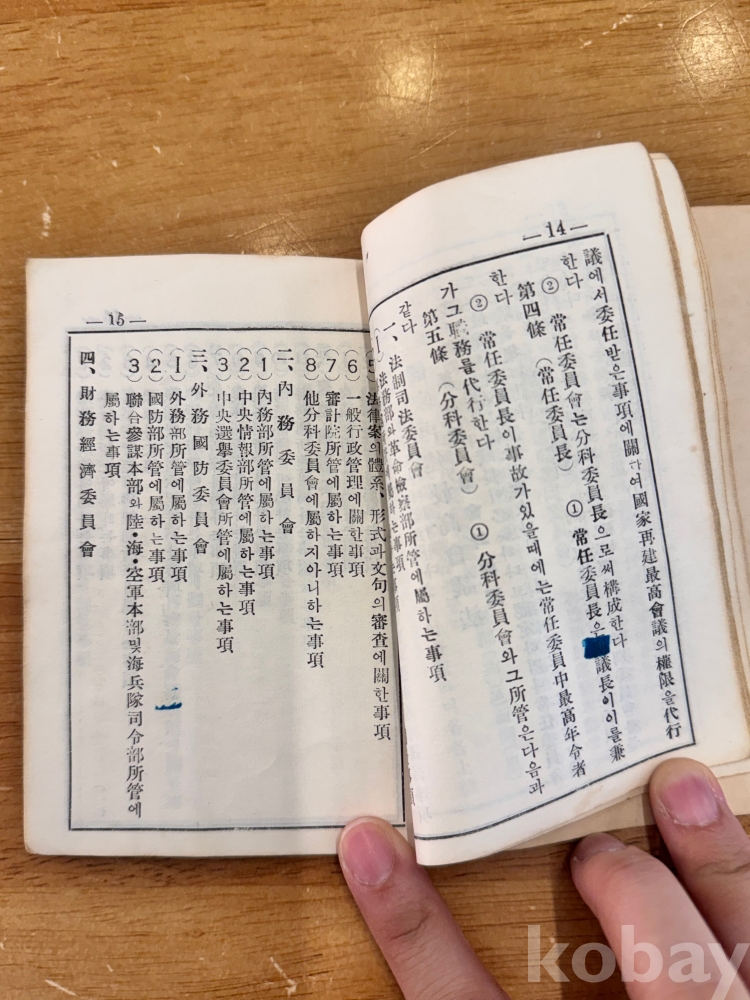 —14—
議에서委任받은事項에關하여國家再建最高會議의權限을代行
한다
② 常任委員會는分科委員長으로써構成한다
第四條 (常任委員長) ① 常任委員長은 議長이이를兼
한다
② 常任委員長이事故가있을때에는常任委員中最高年令者
가그職務를代行한다
第五條 (分科委員會) ① 分科委員會와그所管은다음과
같다
一、法制司法委員會
法務部와革命檢察部所管에屬하는事項
—15—
(5) 法律案의體系、形式과文句의審査에關한事項
(6) 一般行政管理에關한事項
(7) 審計院所管에屬하는事項
(8) 他分科委員會에屬하지아니하는事項
二、內務委員會
(1) 內務部所管에屬하는事項
(2) 中央情報部所管에屬하는事項
(3) 中央選擧委員會所管에屬하는事項
三、外務國防委員會
(1) 外務部所管에屬하는事項
(2) 國防部所管에屬하는事項
(3) 聯合參謀本部와陸·海·空軍本部및海兵隊司令部所管에
屬하는事項
四、財務經濟委員會
kobay